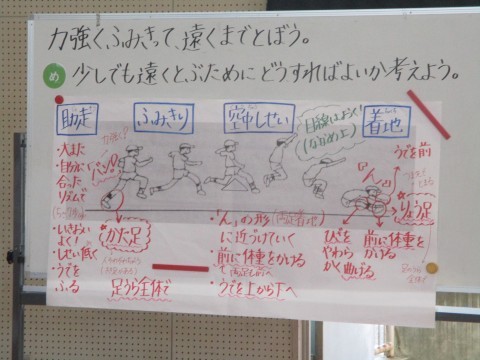 力強くふみきって、遠くまでとぼう。
め 少しでも遠くとぶためにどうすればよいか考えよう。
助走
ふみきり
空中しせい
着地
目線はとおく!
(ななめ上)
力強く?
バン!
・大また
・自分に
合った
リズムで
・いきおい
よく!
・しせい低く
・うでを
ふる
かた足
足うら全体で
・「ん」の形(
に近づけていく
前に体重をかける
・うでを上から下へ
「ん」
うでを前
りょう足
ひざを
やわら
かく曲げる
前に体重を
かける